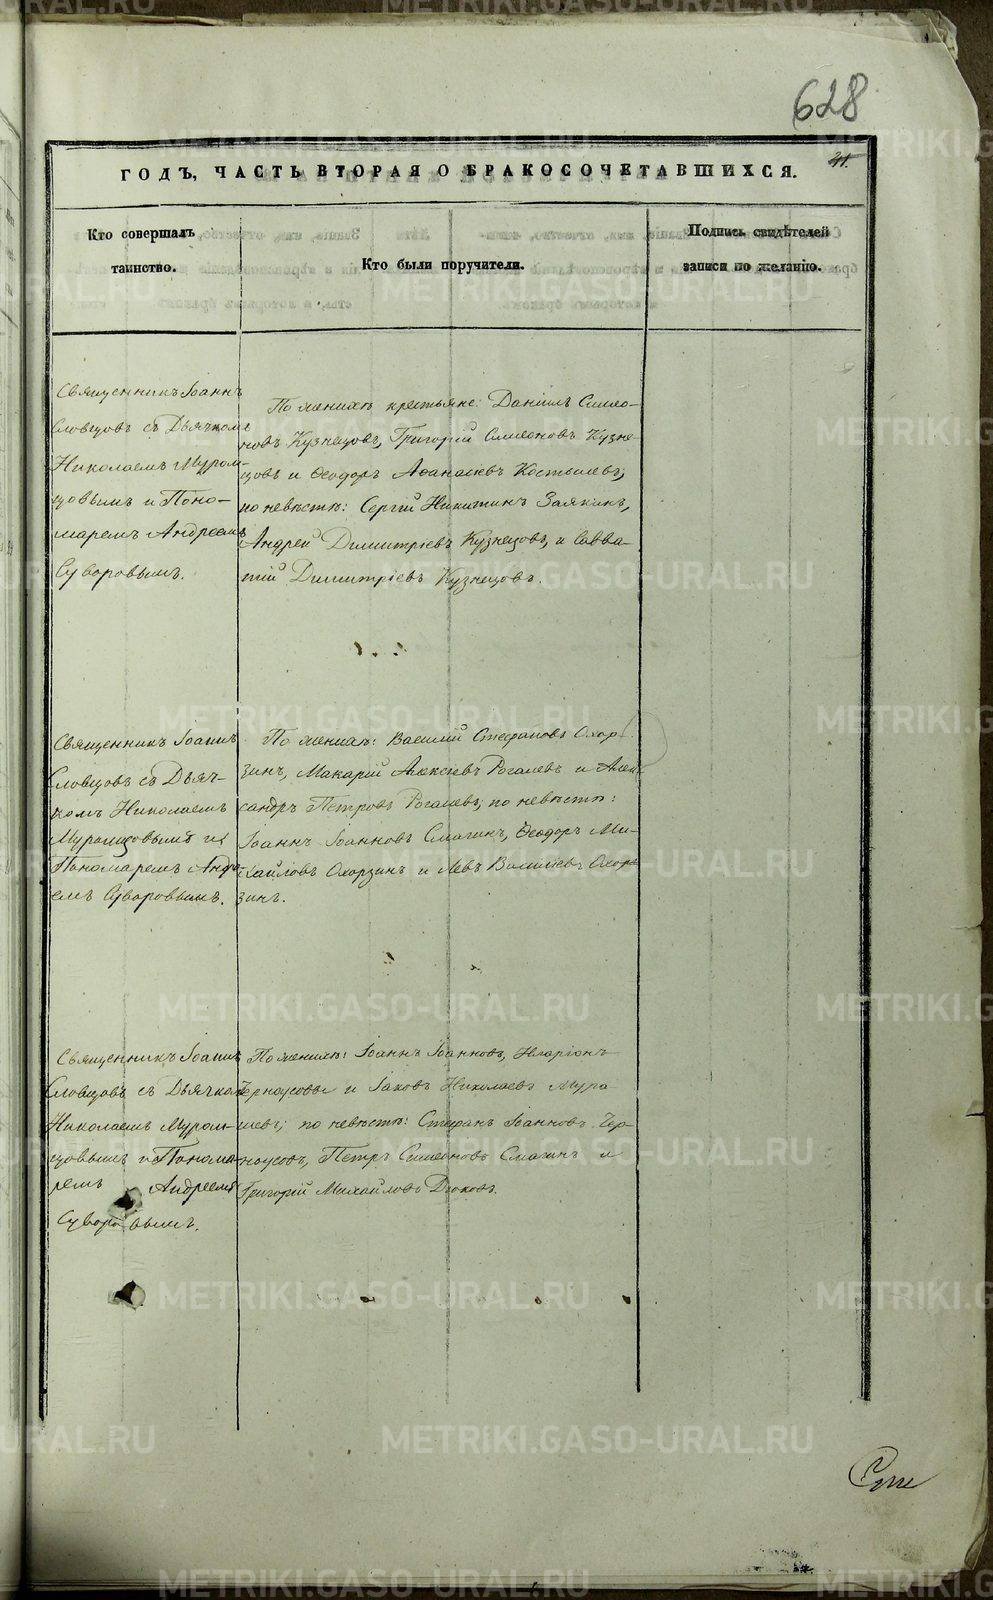 628
31.
ГОДЪ, ЧАСТЬ ВТОРАЯ О БРАКОСОЧЕТАВШИХСЯ.
Кто совершалъ
таинство.
Кто были поручители.
Подпись свидѣтелей
записи по желанію.
Священникъ Іоаннъ
Словцовъ съ Дьячкомъ
Николаемъ Муром-
цовымъ и Поно-
маремъ Андреемъ
Суворовымъ.
По женихѣ крестьяне: Даніилъ Симео-
новъ Кузнецовъ, Григорій Симеоновъ Кузне-
цовъ и Ѳеодоръ Аѳанасіевъ Костылевъ,
по невѣстѣ: Сергій Никитинъ Заякинъ,
Андрей Димитріевъ Кузнецовъ, и Савва-
тій Димитріевъ Кузнецовъ.
Священникъ Іоаннъ
Словцовъ съ Дьяч-
комъ Николаемъ
Муромцовымъ и
Пономаремъ Андре-
емъ Суворовымъ.
По женихѣ: Василій Стефановъ Охор-
зинъ, Макарій Алексіевъ Рогалевъ и Алек-
сандръ Петровъ Рогалевъ, по невѣстѣ:
Іоаннъ Іоанновъ Смагинъ, Ѳеодоръ Ми-
хайловъ Охорзинъ и Левъ Василіевъ Охор-
зинъ.
Священникъ Іоаннъ
Словцовъ съ Дьячкомъ
Николаемъ Муром-
цовымъ и Понома-
ремъ Андреемъ
Суворовымъ.
По женихѣ: Іоаннъ Іоанновъ, Иларіонъ
Черноусовы и Іаковъ Николаевъ Мура-
шевъ; по невѣстѣ: Стефанъ Іоанновъ Чер-
ноусовъ, Петръ Симеоновъ Смагинъ и
Григорій Михайловъ Дюковъ.
METRIKI.GASO-URAL.RU